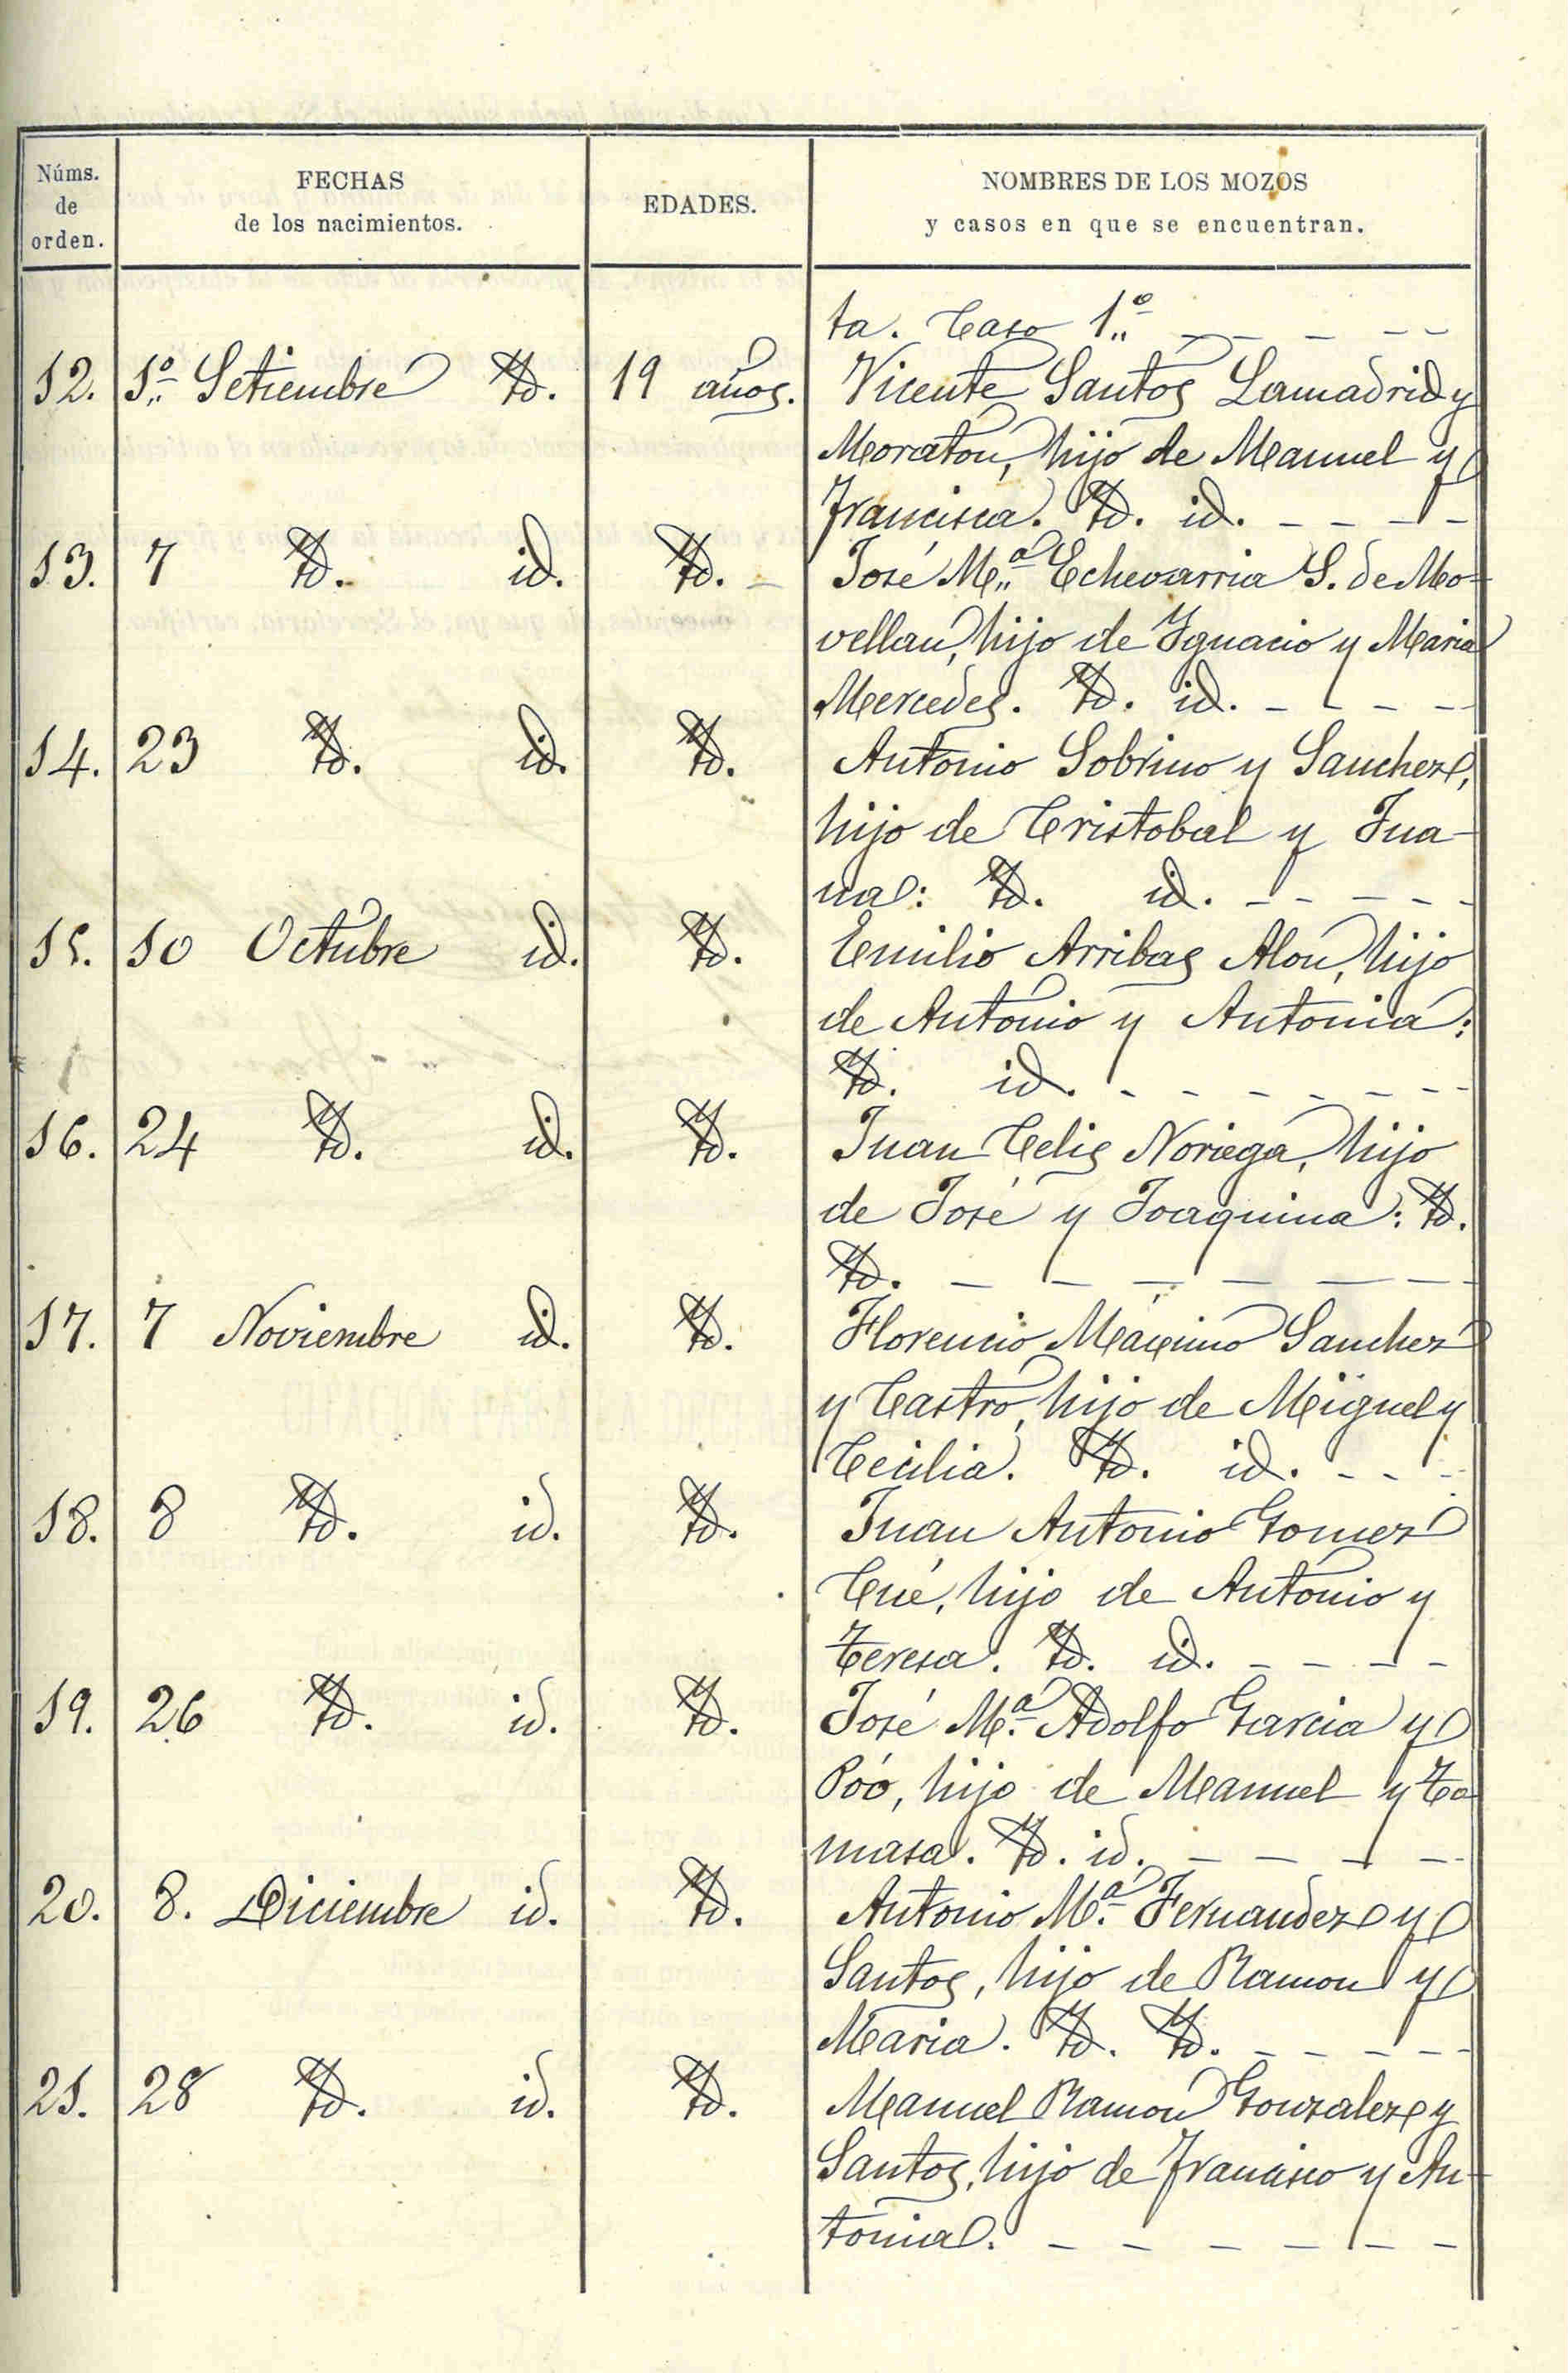 Núms. de orden.
FECHAS de los nacimientos.
EDADES.
NOMBRES DE LOS MOZOS y casos en que se encuentran.
ta. Caso 1.º
12. 1.º Setiembre Id. 19 años. Vicente Santos Lamadrid y
Moraton, hijo de Manuel y
Francisca. Id. id.
13. 7 Id. id. Id. José M.ª Echevarria S. de Mo-
vellan, hijo de Ygnacio y Maria
Mercedes. Id. id.
14. 23 Id. id. Id. Antonio Sobrino y Sanchez,
hijo de Cristobal y Jua-
na: Id. id.
15. 10 Octubre id. Id. Emilio Arribas Alon, hijo
de Antonio y Antonia:
Id. id.
16. 24 Id. id. Id. Juan Celis Noriega, hijo
de José y Joaquina: Id.
Id.
17. 7 Noviembre id. Id. Florencio Maximo Sanchez
y Castro, hijo de Miguel y
Cecilia. Id. id.
18. 8 Id. id. Id. Juan Antonio Gomez
Cué, hijo de Antonio y
Teresa. Id. id.
19. 26 Id. id. Id. José M.ª Adolfo Garcia y
Póo, hijo de Manuel y To
masa. Id. id.
20. 8. Diciembre id. Id. Antonio M.ª Fernandez y
Santos, hijo de Ramon y
Maria. Id. Id.
21. 28 Id. id. Id. Manuel Ramon Gonzalez y
Santos, hijo de Francisco y An-
tonia.